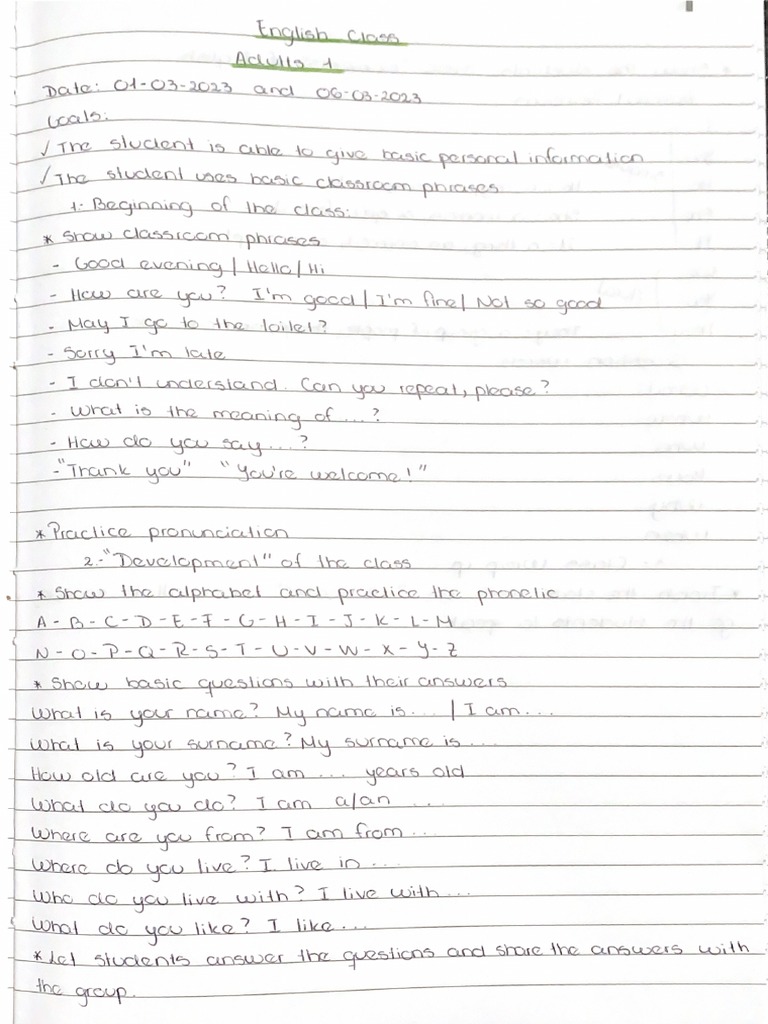 English Class
Adults 1
Date: 01-03-2023 and 06-03-2023
Goals:
✓ The student is able to give basic personal information
✓ The student uses basic classroom phrases
1. Beginning of the class:
* Show classroom phrases
- Good evening / Hello / Hi
- How are you? I'm good / I'm fine / Not so good
- May I go to the toilet?
- Sorry I'm late
- I don't understand. Can you repeat, please?
- What is the meaning of ...?
- How do you say ...?
- "Thank you" "You're welcome!"
* Practice pronunciation
2.- "Development" of the class
* Show the alphabet and practice the phonetic
A - B - C - D - E - F - G - H - I - J - K - L - M
N - O - P - Q - R - S - T - U - V - W - X - Y - Z
* Show basic questions with their answers
What is your name? My name is... / I am ...
What is your surname? My surname is ...
How old are you? I am ... years old
What do you do? I am a/an ...
Where are you from? I am from ...
Where do you live? I live in ...
Who do you live with? I live with ...
What do you like? I like ...
* Let students answer the questions and share the answers with
the group.